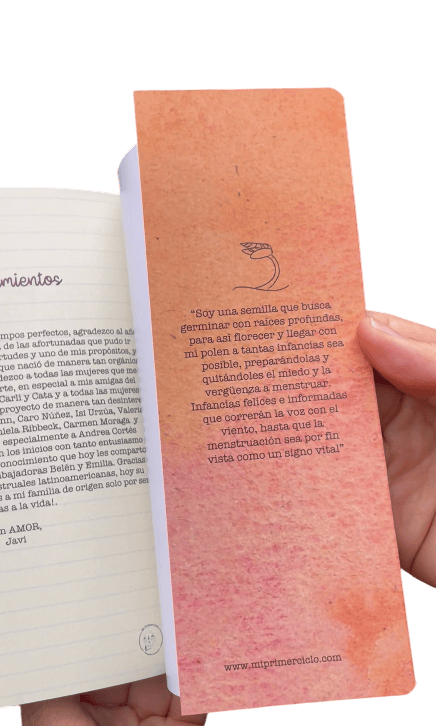 mientos
mpos perfectos, agradezco al año
de las afortunadas que pudo ir
rtudes y uno de mis propósitos, y
que nació de manera tan orgánica
dezco a todas las mujeres que me
rte, en especial a mis amigas del
Carli y Cata y a todas las mujeres
proyecto de manera tan desinter
nn, Caro Núñez, Isi Urzúa, Valeria
niela Ribbeck, Carmen Moraga y
especialmente a Andrea Cortés
n los inicios con tanto entusiasmo
onocimiento que hoy les comparto
bajadoras Belén y Emilia. Gracias
struales latinoamericanas, hoy su
s a mi familia de origen solo por ser
as a la vida!.
n AMOR,
Javi
“Soy una semilla que busca
germinar con raíces profundas,
para así florecer y llegar con
mi polen a tantas infancias sea
posible, preparándolas y
quitándoles el miedo y la
vergüenza a menstruar.
Infancias felices e informadas
que correrán la voz con el
viento, hasta que la
menstruación sea por fin
vista como un signo vital”.
www.miprimerciclo.com